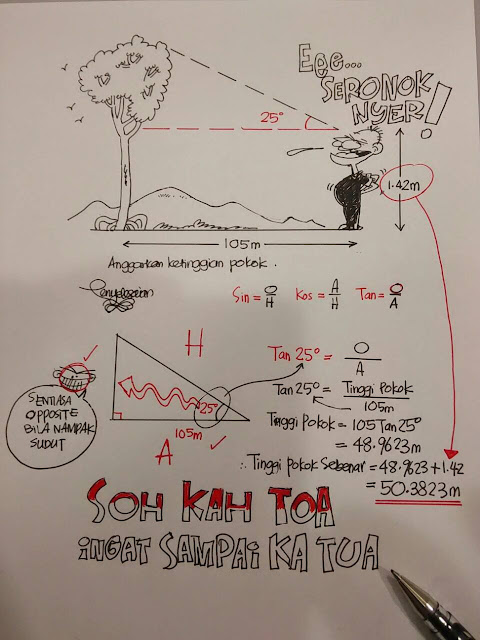 Eee...
SERONOK
NYER!
25°
1.42m
105m
Anggarkan ketinggian pokok.
Penyelesaian
Sin = O/H Kos = A/H Tan = O/A
H
Tan 25° = O/A
SENTIASA
OPPOSITE
BILA NAMPAK
SUDUT
25°
105m
A
Tan 25° = Tinggi Pokok/105m
Tinggi Pokok = 105 Tan 25°
= 48.9623m
∴ Tinggi Pokok Sebenar = 48.9623 + 1.42
= 50.3823m
SOH KAH TOA
iNGAT SAMPAi KA TUA